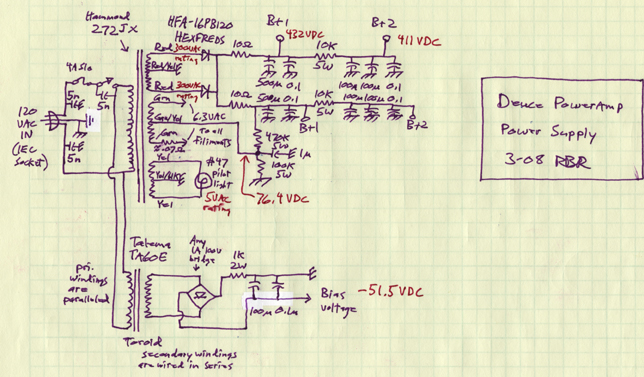 Hammond
272JX
HFA-16PB120
HEXFREDS
B+1
432VDC
B+2
411 VDC
4A Slo
5n
5n
5n
120
VAC
IN
(IEC
Socket)
Red
300VAC
rating
Red/Yel
Red
300VAC
rating
10Ω
500μ 0.1
10K
5W
100μ 100μ 0.1
10Ω
500μ 0.1
10K
5W
100μ 100μ 0.1
B+1
B+2
Grn
Grn/Yel
6.3VAC
Grn
to all
filiments
470K
5W
1μ
100K
5W
76.4 VDC
Yel
Yel/Blk
Yel
#47
pilot
light
5VAC
rating
Dence PowerAmp
Power Supply
3-08 RBR
pri.
windings
are
paralleled
TA60E
Any
1A 100V
bridge
1K
2W
100μ 0.1μ
Bias
voltage
-51.5VDC
Toroid
secondary windings
are wired in series